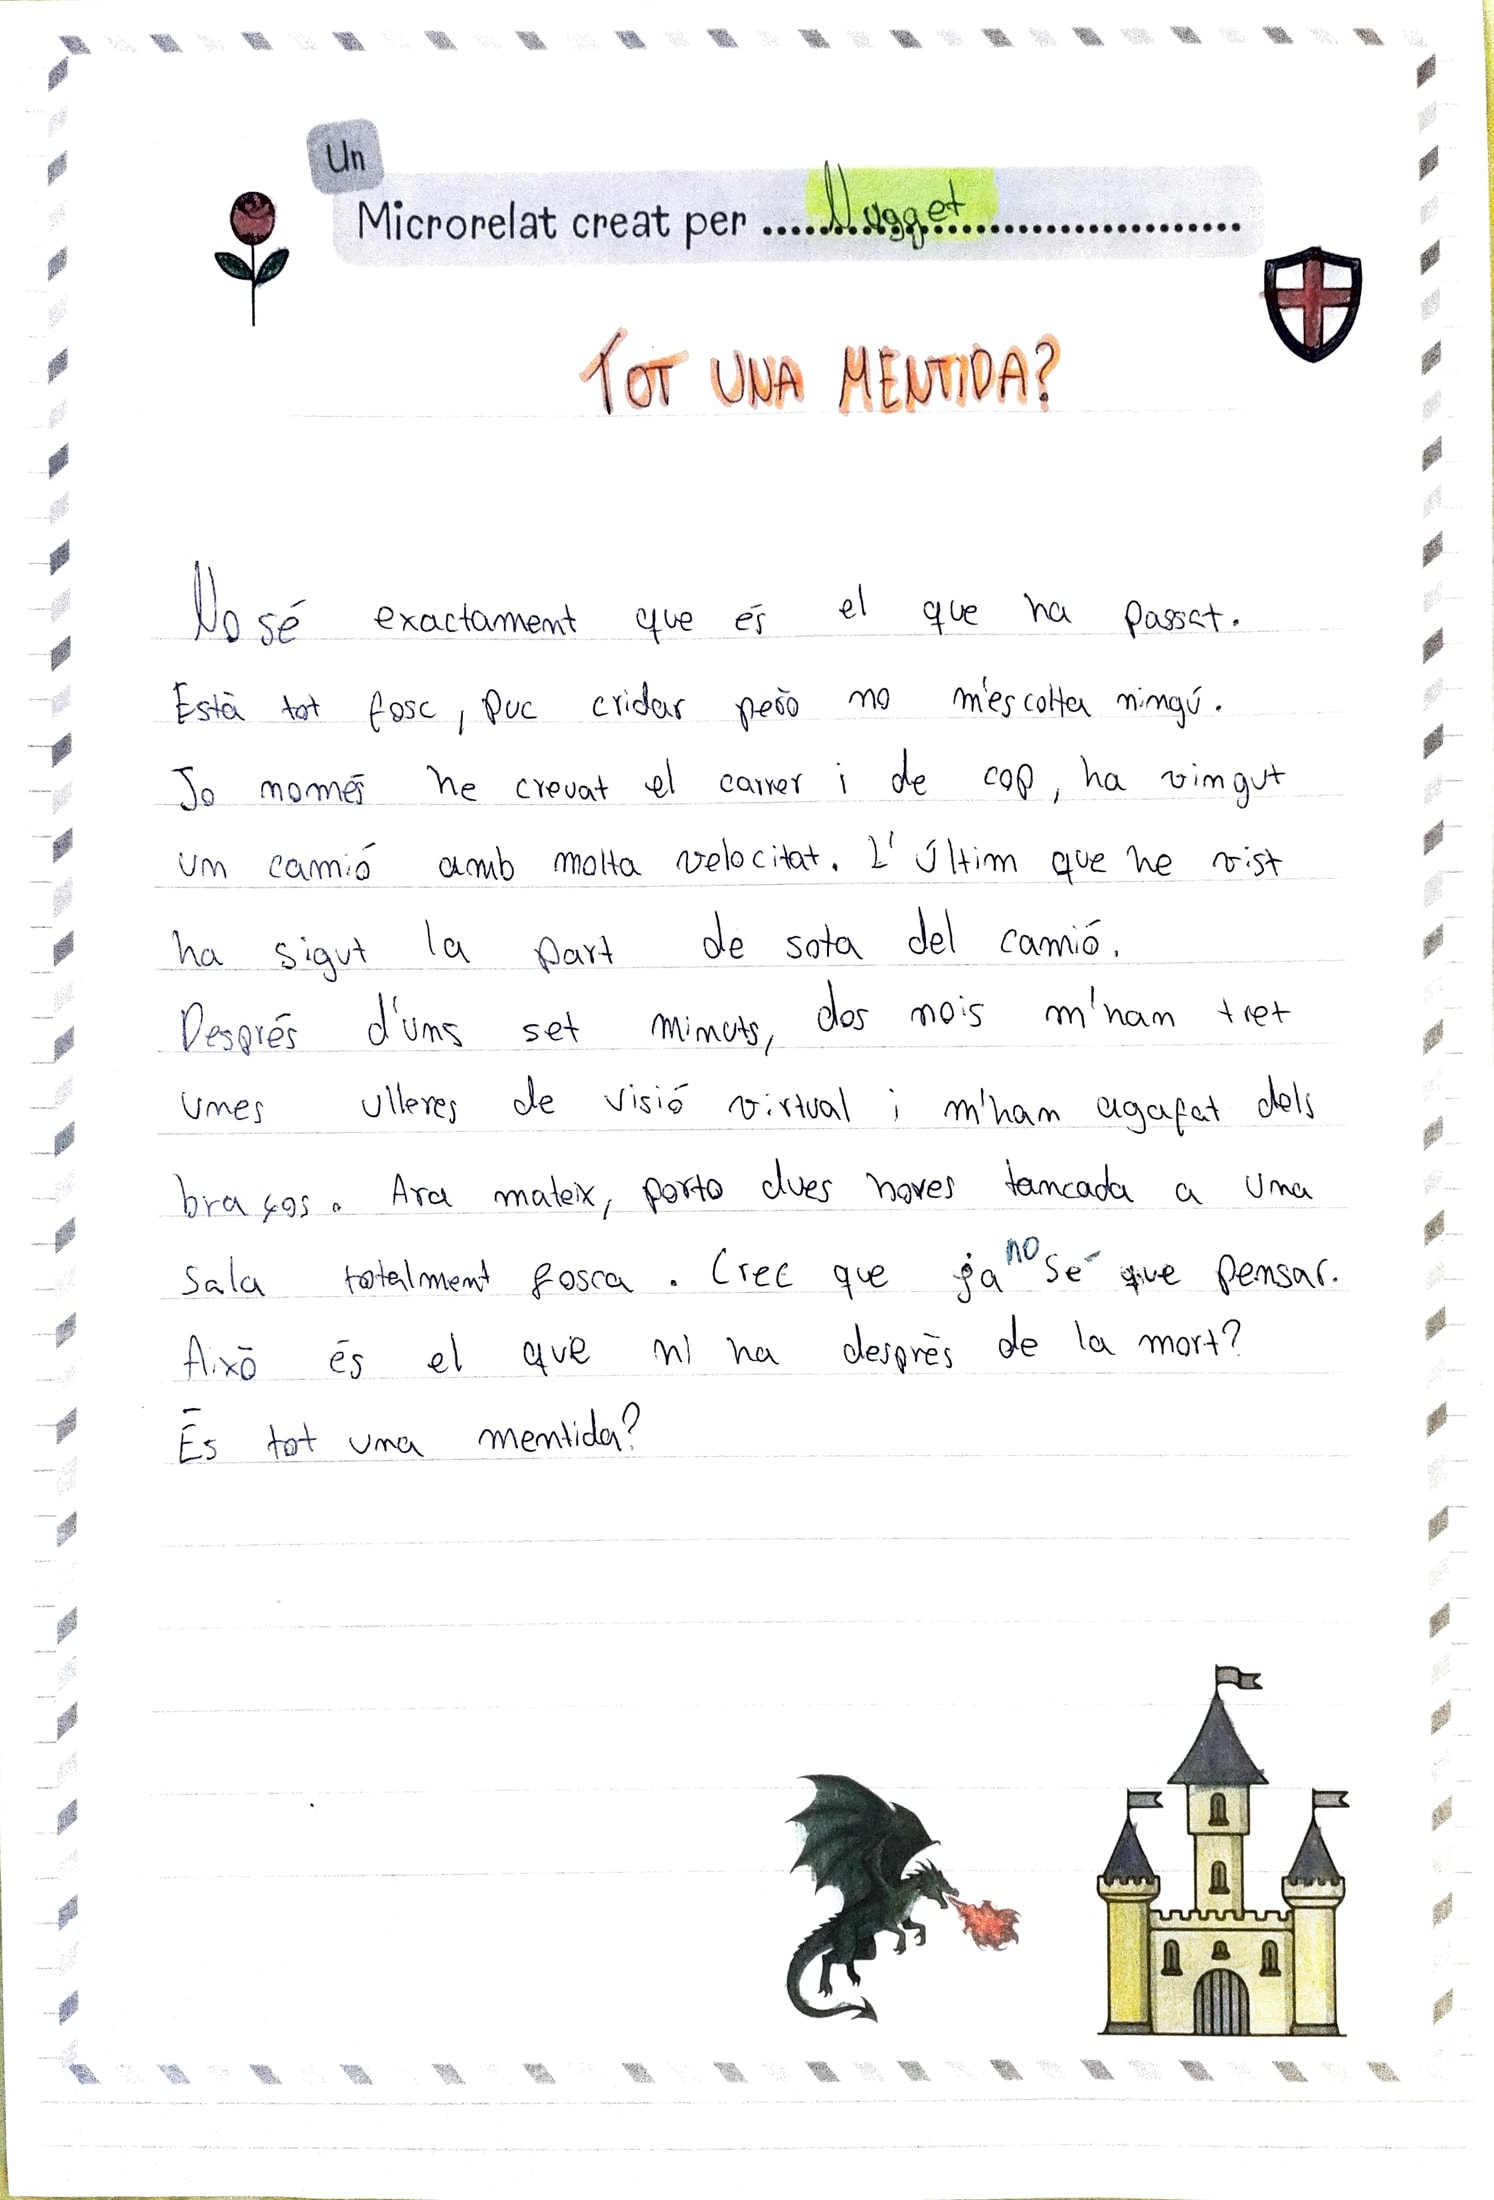 Un
Microrelat creat per Nugget
TOT UNA MENTIDA?
No sé exactament que és el que ha passat.
Està tot fosc, puc cridar però no m'escolta ningú.
Jo només he creuat el carrer i de cop, ha vingut
un camió amb molta velocitat. L'últim que he vist
ha sigut la part de sota del camió.
Després d'uns set minuts, dos nois m'han tret
unes ulleres de visió virtual i m'han agafat dels
braços. Ara mateix, porto dues hores tancada a una
sala totalment fosca. Crec que ja no sé que pensar.
Això és el que hi ha desprès de la mort?
És tot una mentida?